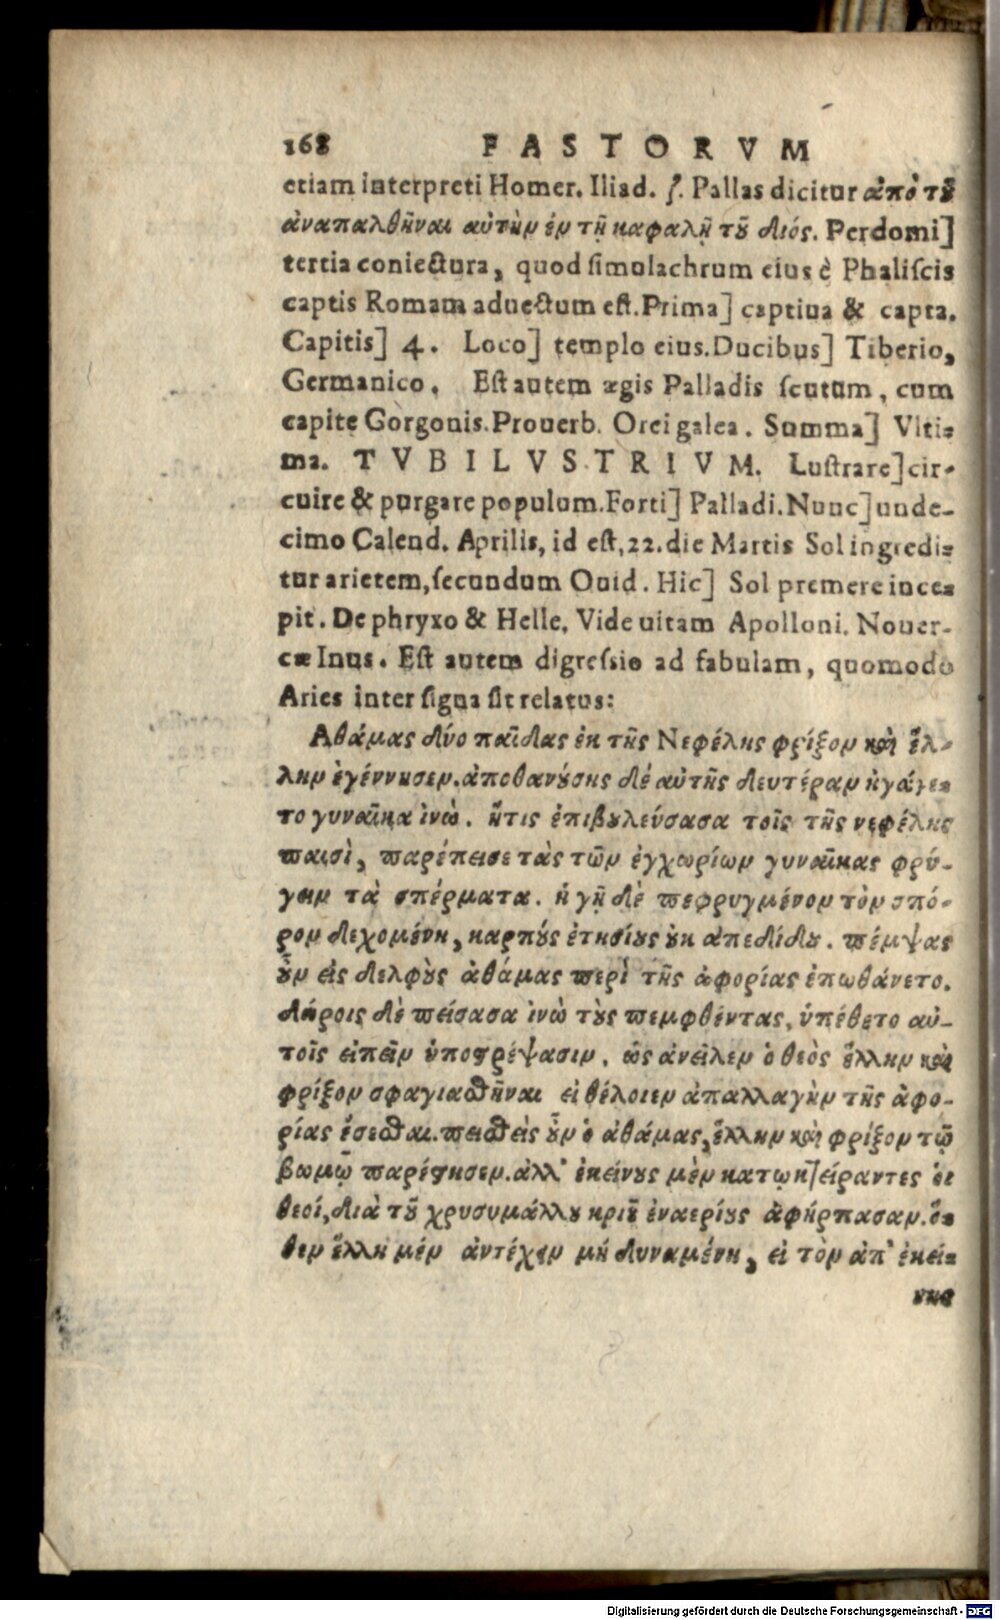 168 FASTORVM
etiam interpreti Homer. Iliad. ζ. Pallas dicitur ἀπὸ τȣ͂
ἀναπαλθῆναι αὐτὴν ἐν τῇ καφαλῇ τȣ͂ Διός. Perdomi]
tertia coniectura, quod simulachrum eius è Phaliscis
captis Romam aduectum est. Prima] captiua & capta.
Capitis] 4. Loco] templo eius. Ducibus] Tiberio,
Germanico. Est autem ægis Palladis scutum, cum
capite Gorgonis. Prouerb. Orci galea. Summa] Vlti=
ma. TVBILVSTRIVM. Lustrare] cir-
cuire & purgare populum. Forti] Palladi. Nunc] unde-
cimo Calend. Aprilis, id est, 22. die Martis Sol ingredi=
tur arietem, secundum Ouid. Hic] Sol premere ince=
pit. De phryxo & Helle. Vide uitam Apolloni. Nouer-
cæ Inus. Est autem digressio ad fabulam, quomodo
Aries inter signa sit relatus:
Αθάμας δύο παῖδας ἐκ τῆς Νεφέλης φρίξον καὶ ἕλ-
λην ἐγέννησεν. ἀποθανȣ́σης δέ αὐτῆς δευτέραν ἠγάγε=
το γυναῖκα ἰνὼ. ἥτις ἐπιβȣλεύσασα τοῖς τῆς νεφέλης
παισὶ, παρέπεισε τὰς τῶν ἐγχωρίων γυναῖκας φρύ-
γειν τὰ σπέρματα. ἡ γῆ δὲ πεφρυγμένον τὸν σπό-
ρον δεχομένη, καρπȣ́ς ἐτησίȣς ȣ́κ ἀπεδίδȣ. πέμψας
ȣ̓͂ν εἰς δελφȣ̀ς ἀθάμας περὶ τῆς ἀφορίας ἐπωθάνετο.
δώροις δὲ πείσασα ἰνὼ τȣ̀ς πεμφθέντας, ὑπέθετο αὐ-
τοῖς εἰπεῖν ὑποστρέψασιν, ὡς ἀνεῖλεν ὁ θεὸς ἕλλην καὶ
φρίξον σφαγιασθῆναι εἰ θέλοιεν ἀπαλλαγὴν τῆς ἀφο-
ρίας ἔσεσθαι. πεισθεὶς ȣ̓͂ν ὁ ἀθάμας, ἕλλην καὶ φρίξον τῷ
βωμῷ παρέστησεν. ἀλλ' ἐκείνȣς μὲν κατῳκτείραντες ὁι
θεοί, διὰ τȣ͂ χρυσυμάλλȣ κριȣ͂ ἐναερίȣς ἀφήρπασαν. ὅ=
θεν ἕλλη μέν ἀντέχειν μή δυναμένη, εἰ τὸν ἀπ' ἐκεί=
νης
Digitalisierung gefördert durch die Deutsche Forschungsgemeinschaft - DFG